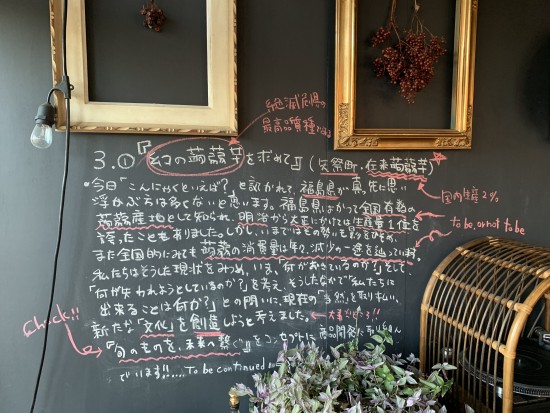 絶滅危惧の
最高品質種である
3.①『幻の蒟蒻芋を求めて』(矢祭町、在来蒟蒻芋)
国内生産2%
今日「こんにゃくといえば？」と訊かれて、福島県が真っ先に思い
浮かぶ方は多くないと思います。福島県はかつて全国有数の
蒟蒻産地として知られ、明治から大正にかけては生産量1位を
誇ったこともありました。しかし、いまではその勢いも影を潜め、
to be, or not to be
また全国的にみても蒟蒻の消費量は年々減少の一途を辿っています。
私たちはそうした現状をみつめ、いま、「何がおきているのか？」そして、
「何が失われようとしているのか？」を考え、そうしたなかで「私たちに
出来ることは何か？」との問いに、現在の「当然」を取り払い、
新たな「文化」を創造しようと考えました。 ←大事だヨ!!
Check!!
『旬のものを、未来へ繋ぐ』をコンセプトに商品開発に取り組ん
でいます!!....To be continued